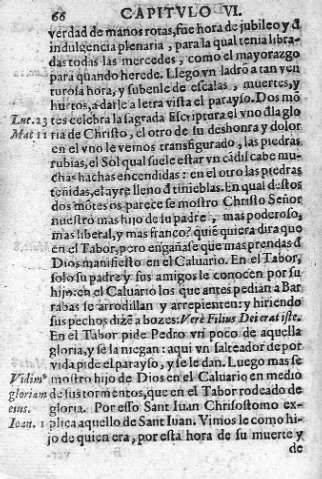 66 CAPITVLO VI.
verdad de manos rotas, fue hora de jubileo y đ
indulgencia plenaria, para la qual tenia libra-
das todas las mercedes, como el mayorazgo
para quando herede. Llego vn ladrõ a tan ven
turosa hora, y subenle de escalas, muertes, y
hurtos, a darle a letra vista el parayso. Dos mõ
Luc. 23 tes celebra la sagrada Escriptura el vno đ la glo
Mat 11 ria de Christo, el otro de su deshonra y dolor
en el vno le vemos transfigurado, las piedras
rubias, el Sol qual suele estar vn cãdil cabe mu-
chas hachas encendidas: en el otro las piedras
teñidas, el ayre lleno đ tinieblas. En qual destos
dos mõtes os parece se mostro Christo Señor
nuestro mas hijo de su padre, mas poderoso,
mas liberal, y mas franco? quiẽ quiera dira que
en el Tabor, pero engañase que mas prendas đ
Dios manifiesto en el Caluario. En el Tabor,
solo su padre y sus amigos le conocen por su
hijo: en el Caluario los que antes pedian a Bar
rabas se arrodillan y arrepienten: y hiriendo
sus pechos dizẽ a bozes: Verè Filius Dei erat iste.
En el Tabor pide Pedro vn poco de aquella
gloria, y se la niegan: aqui vn salteador de por
vida pide el parayso, y se le dan. Luego mas se
Vidim⁹ mostro hijo de Dios en el Caluario en medio
gloriam de sus tormentos, que en el Tabor rodeado de
eius. gloria. Por esso Sant Iuan Chrisostomo ex-
Ioan. 1 plica aquello de Sant Iuan. Vimos le como hi-
jo de quien era, por esta hora de su muerte y
de